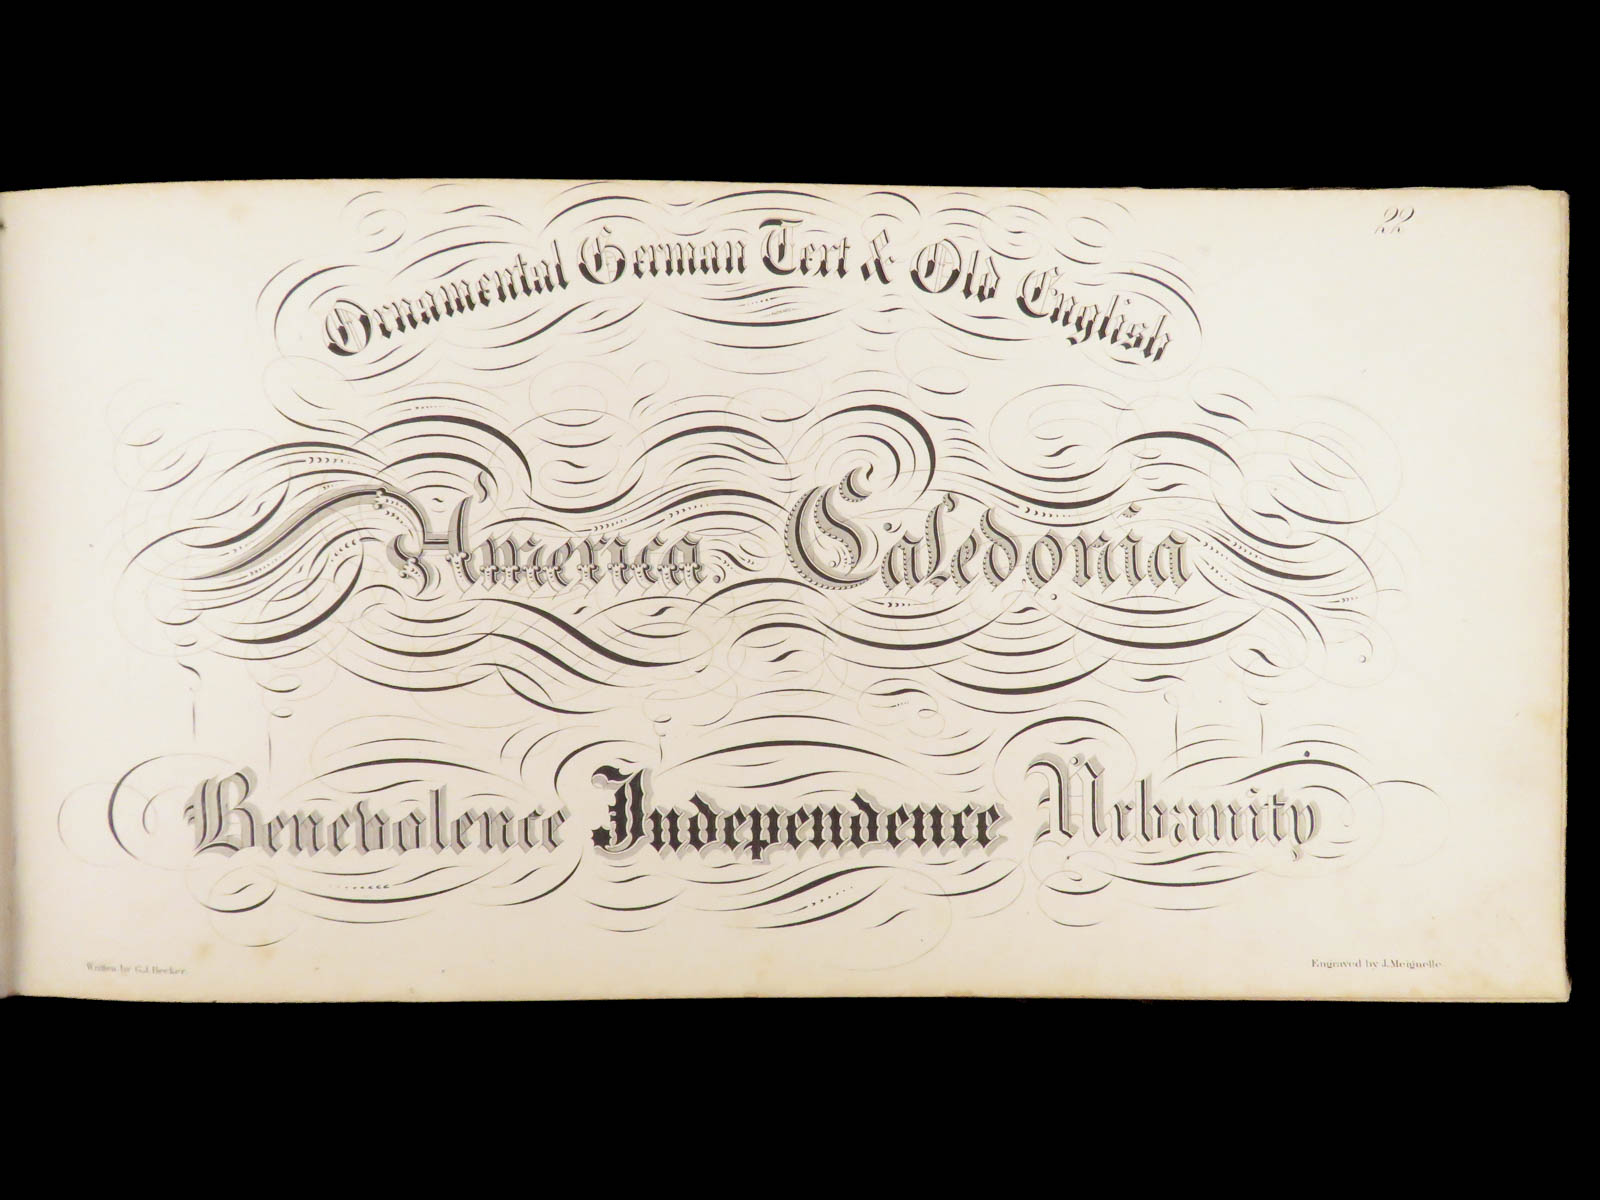 22
Ornamental German Text & Old English
America Caledonia
Benevolence Independence Urbanity
Written by G.J. Becker.
Engraved by J. Meignelle